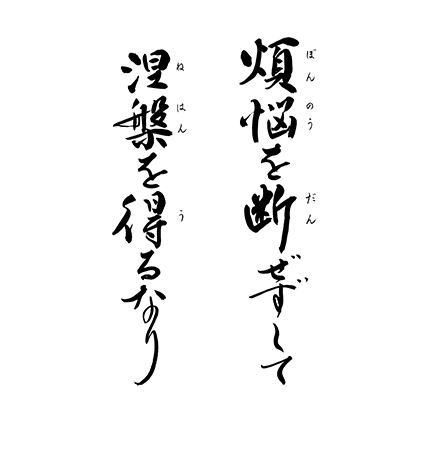 煩悩を断ぜずして
ぼんのう だん
涅槃を得るなり
ねはん う